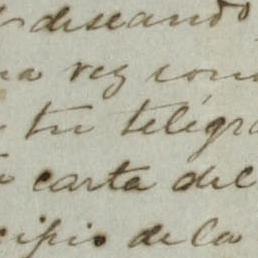 deseando
na vez con
tu telégra
carta del
cipio de la